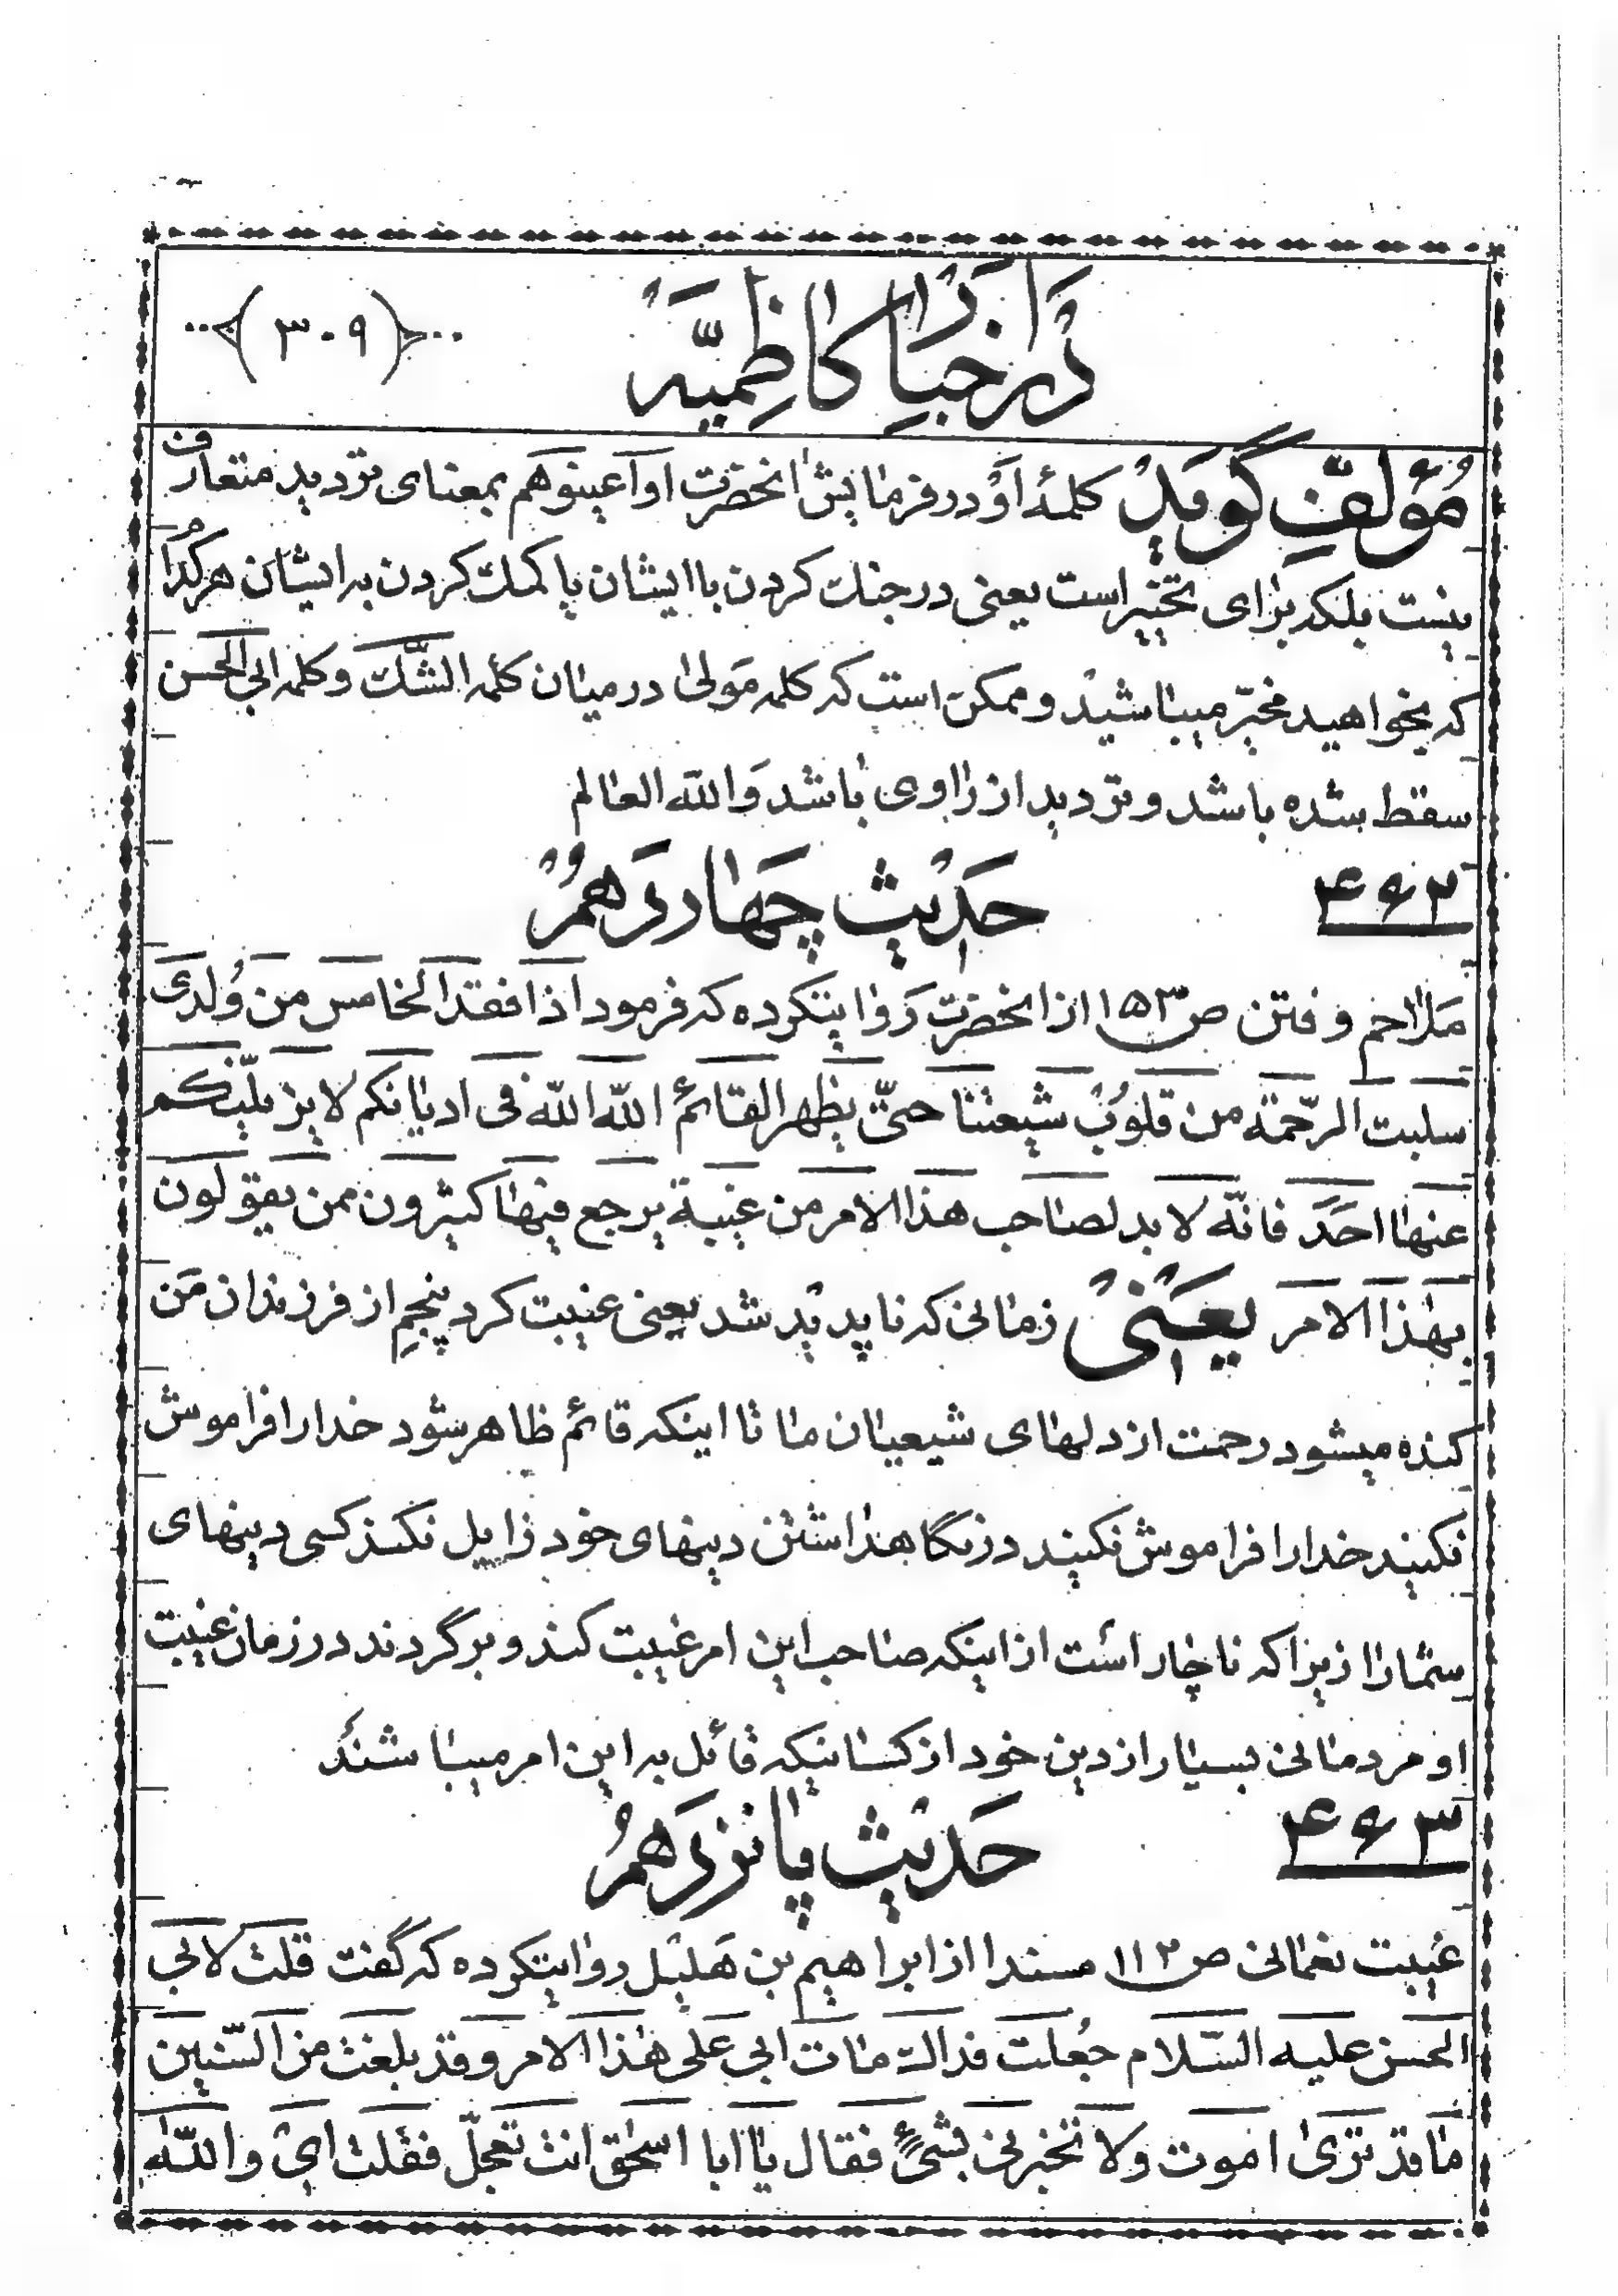 در اخبار کاظمیّه
(۳۰۹)
مؤلّف گوید کلمهٔ اَوْ در فرمایش انحضرت اوأعینوهم بمعنای تردید متعارف
نیست بلکه برای تخییر است یعنی در جنك کردن با ایشان یا کمك کردن به ایشان هرکدام
که بخواهید مخیّر میباشید و ممکن است که کلمه مَولیٰ در میان کلمه الشّك و کلمه ابی الحسن
سقط شده باشد و تردید از راوی باشد وَالله العالم
۴۶۲
حَدیث چهاردهم
مَلاحم و فتن ص۱۵۳ از انحضرت رَوایتکرده که فرمود اذا فقد الخامس من وُلدی
سلبت الرّحمة من قلوب شیعتنا حتّی یظهر القائم الله الله فی ادیانکم لا یزیلنّکم
عنها احَد فانّه لا بد لصاحب هذا الامر من غیبة یرجع فیها کثیرون ممن یقولون
بهٰذا الامر یعنی زمانی که ناپدید شد یعنی غیبت کرد پنجمِ از فرزندان مَن
کنده میشود رحمت از دلهای شیعیان ما تا اینکه قائم ظاهر شود خدا را فراموش
نکنید خدا را فراموش نکنید در نگاهداشتن دینهای خود زایل نکند کسی دینهای
شما را زیرا که ناچار است از اینکه صاحب این امر غیبت کند و برگردند در زمان غیبت
او مردمانی بسیار از دین خود از کسانیکه قائل به این امر میباشند
۴۶۳
حَدیث پانزدهم
غیبت نعمانی ص۱۱۲ مسندا از ابراهیم بن هَلیل روایتکرده که گفت قلت لابی
الحسن علیه السّلام جُعلت فداك مات ابی عَلی هٰذا الامر و قد بلغت من السّنین
مٰا قد ترَیٰ اموت ولا تخبرنی بشیءٍ فقال یٰا ابا اسحٰق انت تعجل فقلت ای والله